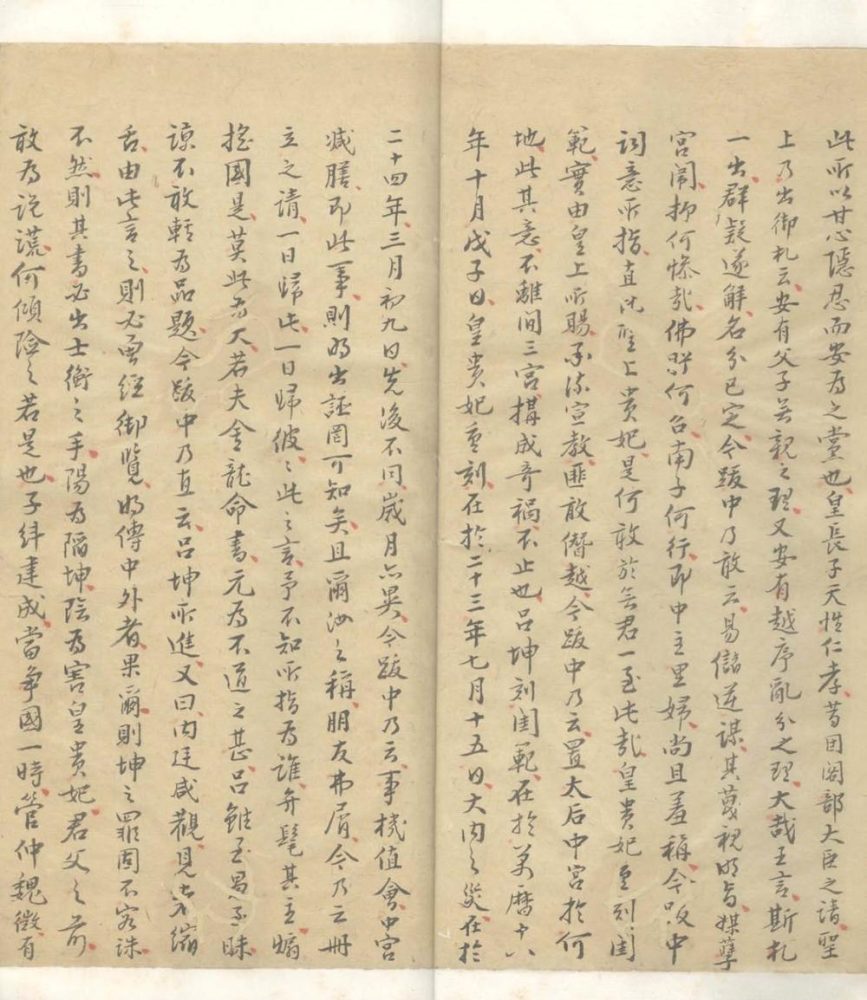 此所以甘心隱忍而安為之黨也皇長子天性仁孝昔因閣部大臣之請聖
上乃出御札云安有父子無親之理又安有越序亂分之理大哉王言斯札
一出群疑遂解名分已定今跋中乃敢云易儲逆謀其蔑視明旨媒孽
宮闈抑何慘哉佛肸何召南子何行即中主里婦尚且羞稱今跋中
詞意所指直比聖上貴妃是何敢於無君一至此哉皇貴妃重刻閨
範實由皇上所賜承流宣教匪敢僭越今跋中乃云置太后中宮於何
地此其意不離間三宮搆成奇禍不止也呂坤刻閨範在於萬曆十八
年十月戊子日皇貴妃重刻在於二十三年七月十五日大內之災在於
二十四年三月初九日先後不同歲月亦異今跋中乃云事機值會中宮
減膳即此事則明出誣罔可知矣且爾汝之稱朋友弗屑今乃云冊
立之請一曰歸此一曰歸彼彼此之言予不知所指為誰弁髦其主煽
搖國是莫此為大若夫舍龍命書元為不道之甚呂雖至愚至昧
諒不敢輕為品題今跋中乃直云呂坤所進又曰內廷咸觀見者縮
舌由此言之則必面經御覽明傳中外者果爾則坤之罪固不容誅
不然則其書必出士衡之手陽為陷坤陰為害皇貴妃君父之前
敢為說謊何傾險之若是也子糾建成當爭國一時管仲魏徵有